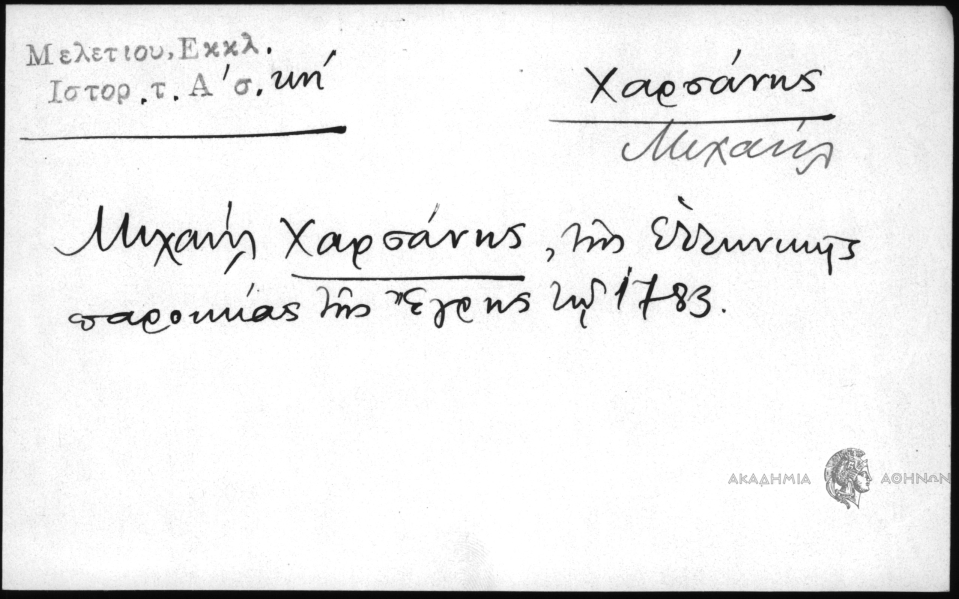 Μελετιου, Εκκλ.
Ιστορ. τ. Α' σ. κη'
Χαρσάνης
Μιχαήλ
Μιχαήλ Χαρσάνης, τῆς Ἑλληνικῆς
παροικίας τῆς Ἔγρης τῷ 1783.
ΑΚΑΔΗΜΙΑ ΑΘΗΝΩΝ